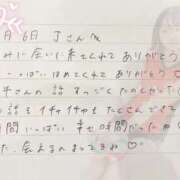 月6日 Jさんへ
みに会いに来てくれてありがとう
いっぱいほめてくれてありがとう♡
手さんの話 すっごくたのしくて
話もイチャイチャもたくさんでき
間いっぱい 幸せ時間だったか
た、会えるのまってるね♡